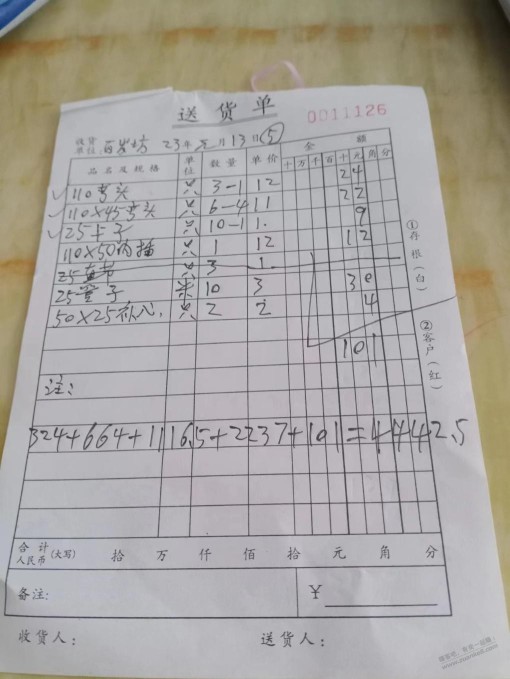 送货单
0011126
收货单位: 百岁坊 23年元月13日⑤
品名及规格 单位 数量 单价 金额
十 万 千 百 十 元 角 分
110弯头 只 3-1 12 24
110×45弯头 只 6-4 11 22
25卡子 只 10-1 1. 9
110×50内插 只 1 12 12
25直节 只 3 1
25管子 米 10 3 30
50×25补心 只 2 2 4
101
注:
324+664+1116.5+2237+101=4442.5
合计人民币(大写) 拾 万 仟 佰 拾 元 角 分
备注: ¥
收货人: 送货人:
①存根(白)
②客户(红)